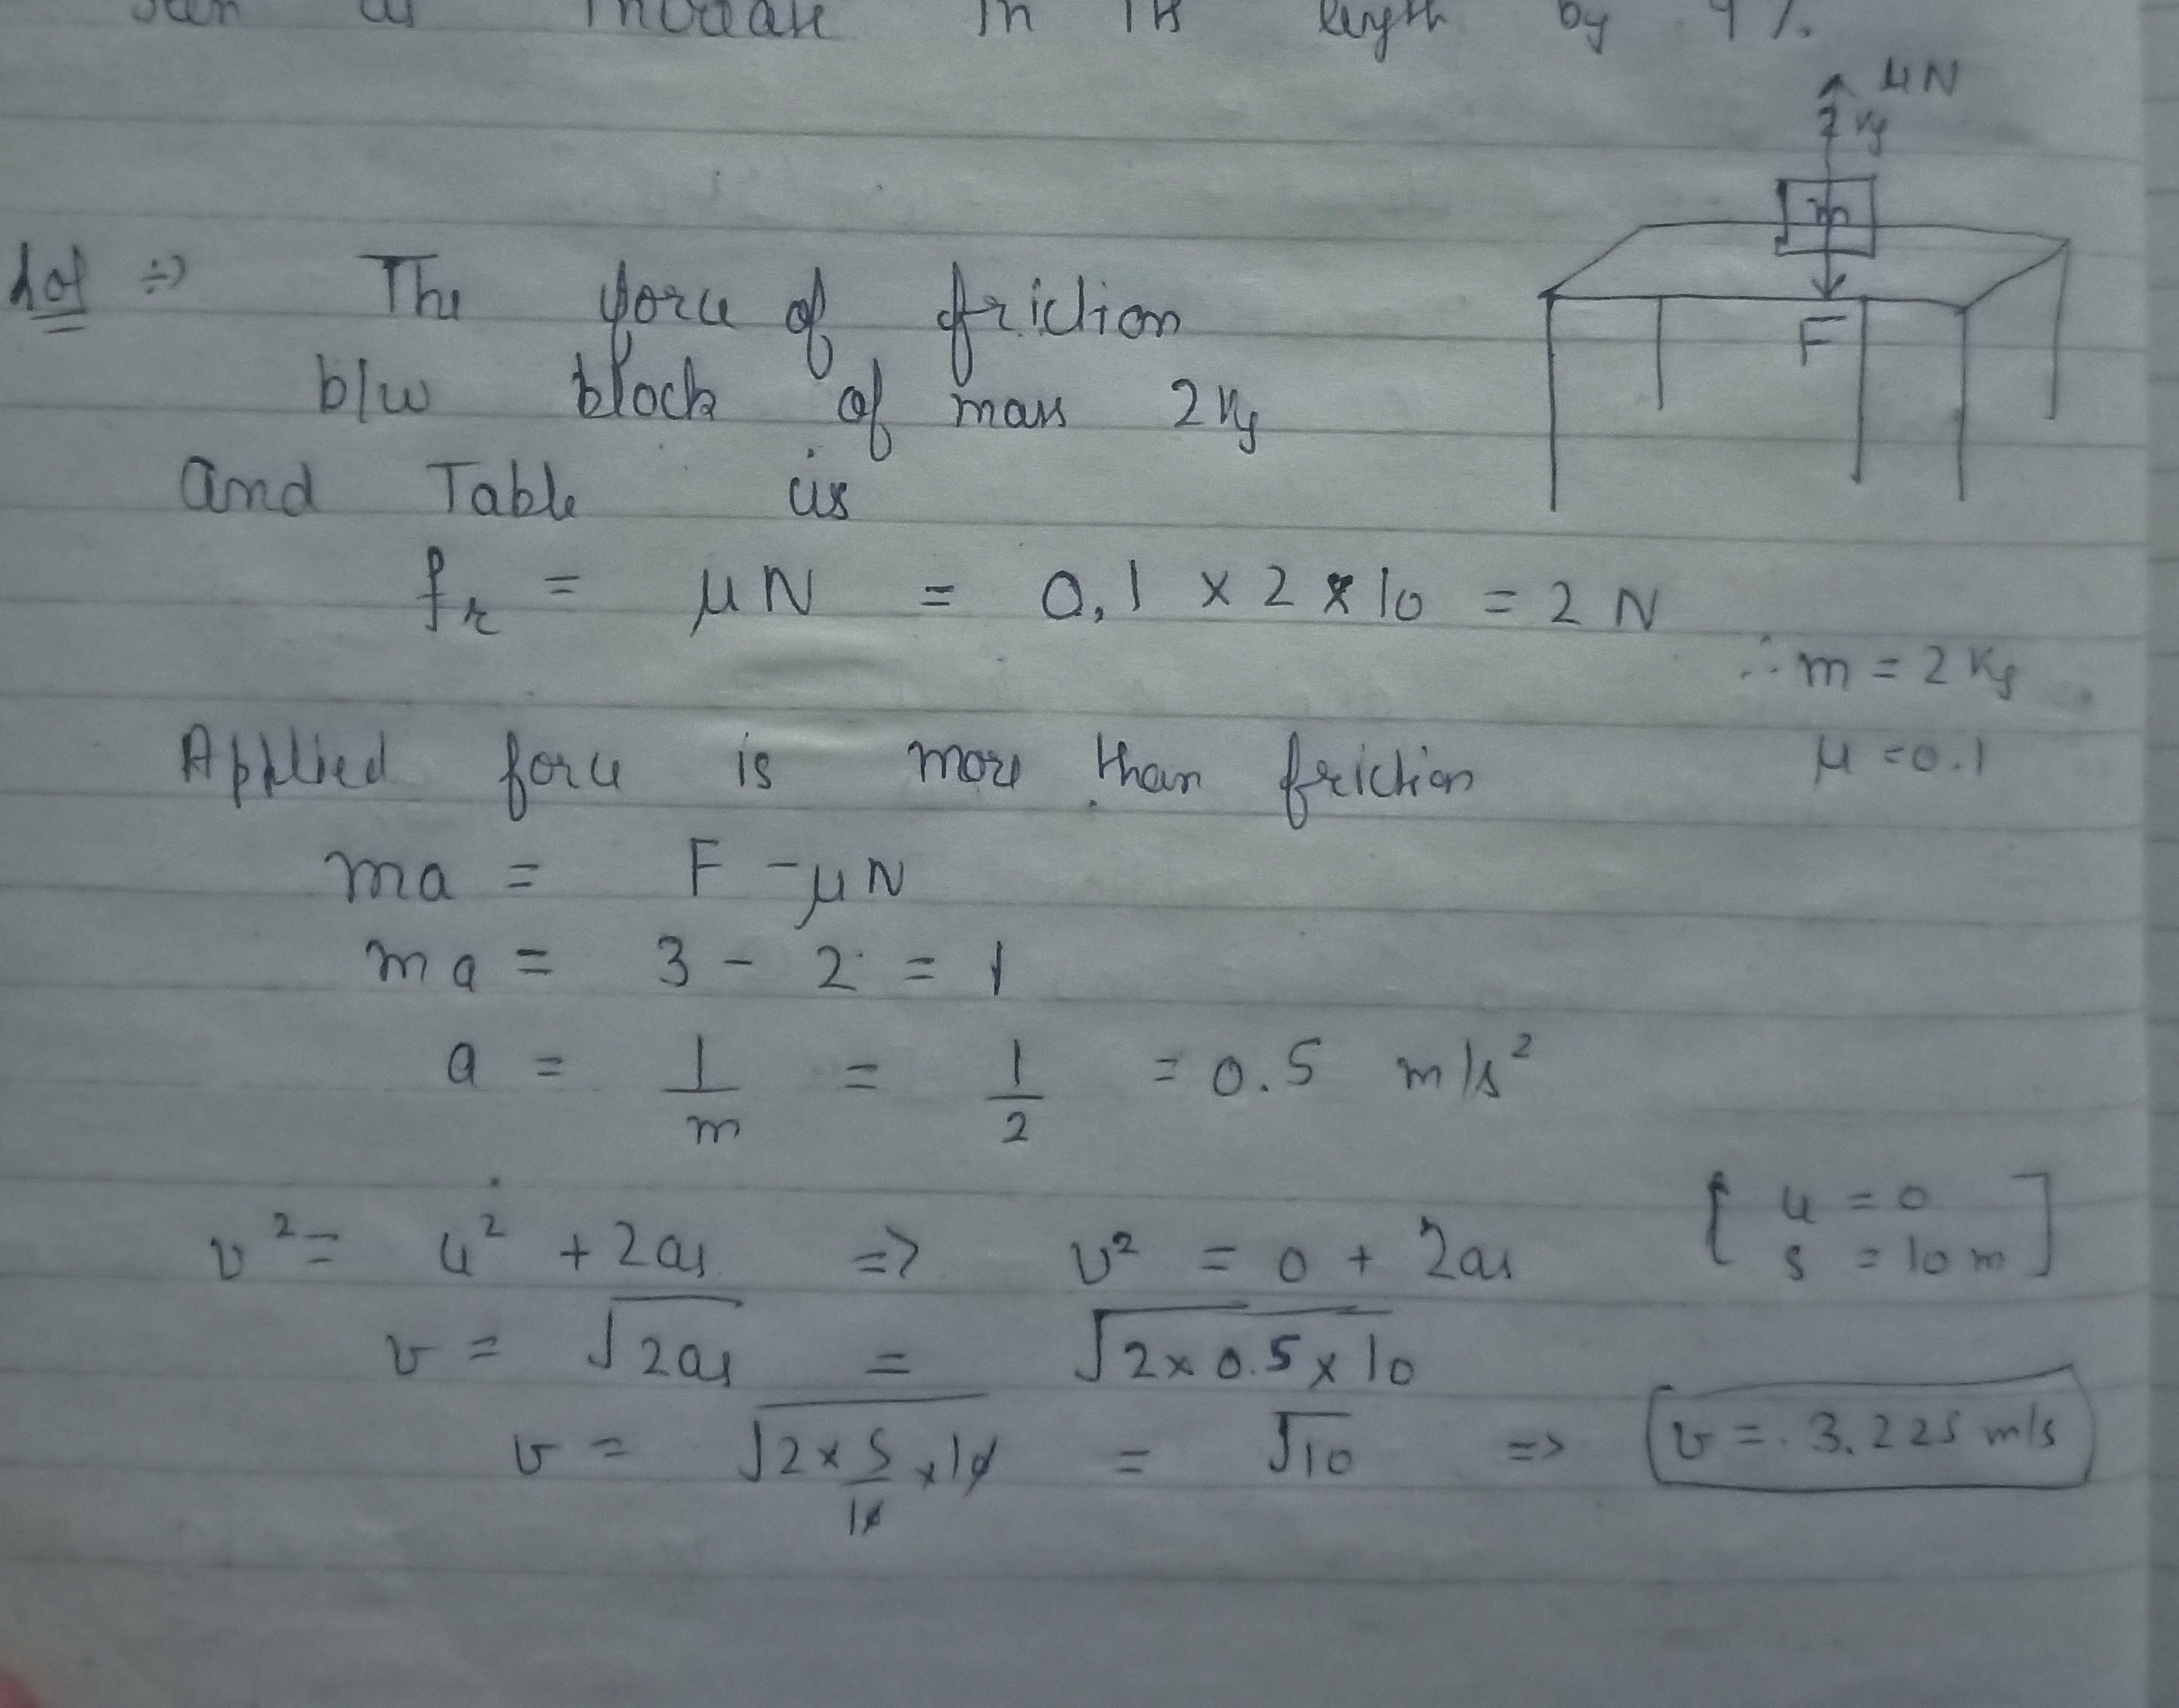 in its length by 4%.
μN
2 kg
m
F
Sol ⇒ The force of friction
b/w block of mass 2 kg
and Table is
fr = μN = 0.1 × 2 × 10 = 2 N
∴ m = 2 kg
μ = 0.1
Applied force is more than friction
ma = F - μN
ma = 3 - 2 = 1
a = 1/m = 1/2 = 0.5 m/s²
v² = u² + 2as => v² = 0 + 2as [u = 0 s = 10 m]
v = √2as = √2×0.5×10
v = √2×5/10×10 = √10 => v = 3.225 m/s